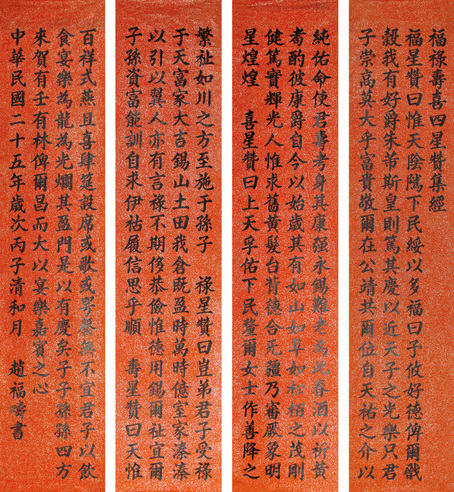 福祿壽喜四星贊集經
福星贊曰惟天陰騭下民綏以多福曰予攸好德俾爾戩
穀我有好爵朱芾斯皇則篤其慶以近天子之光樂只君
子崇高莫大乎富貴敬爾在公靖共爾位自天祐之介以
繁祉如川之方至施于孫子 祿星贊曰豈弟君子受祿
于天富家大吉錫山土田我倉既盈時萬時億室家溱溱
以引以翼人亦有言祿不期侈恭儉惟德用錫爾祉宜爾
子孫資富能訓自求伊祜履信思乎順 壽星贊曰天惟
純佑命使君壽考身其康强永錫難老為此春酒以祈黃
耇酌彼康爵自今以始歲其有如山如阜如松栢之茂剛
健篤實輝光人惟求舊黃髮台背德合无疆乃審厥象明
星煌煌 喜星贊曰上天孚佑下民釐爾女士作善降之
百祥式燕且喜肆筵設席或歌或咢綦無不宜君子以飲
食宴樂為龍為光爛其盈門是以有慶矣子子孫孫四方
來賀有壬有林俾爾昌而大以宴樂嘉賓之心
中華民國二十五年歲次丙子清和月 趙福書